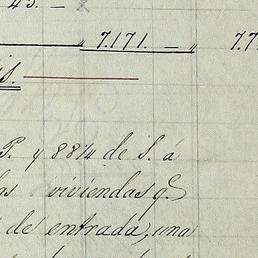 43. -
" 7.171. - " 7.7
is.
P. y 88¼ de S. á
viviendas q.e
de entrada, una